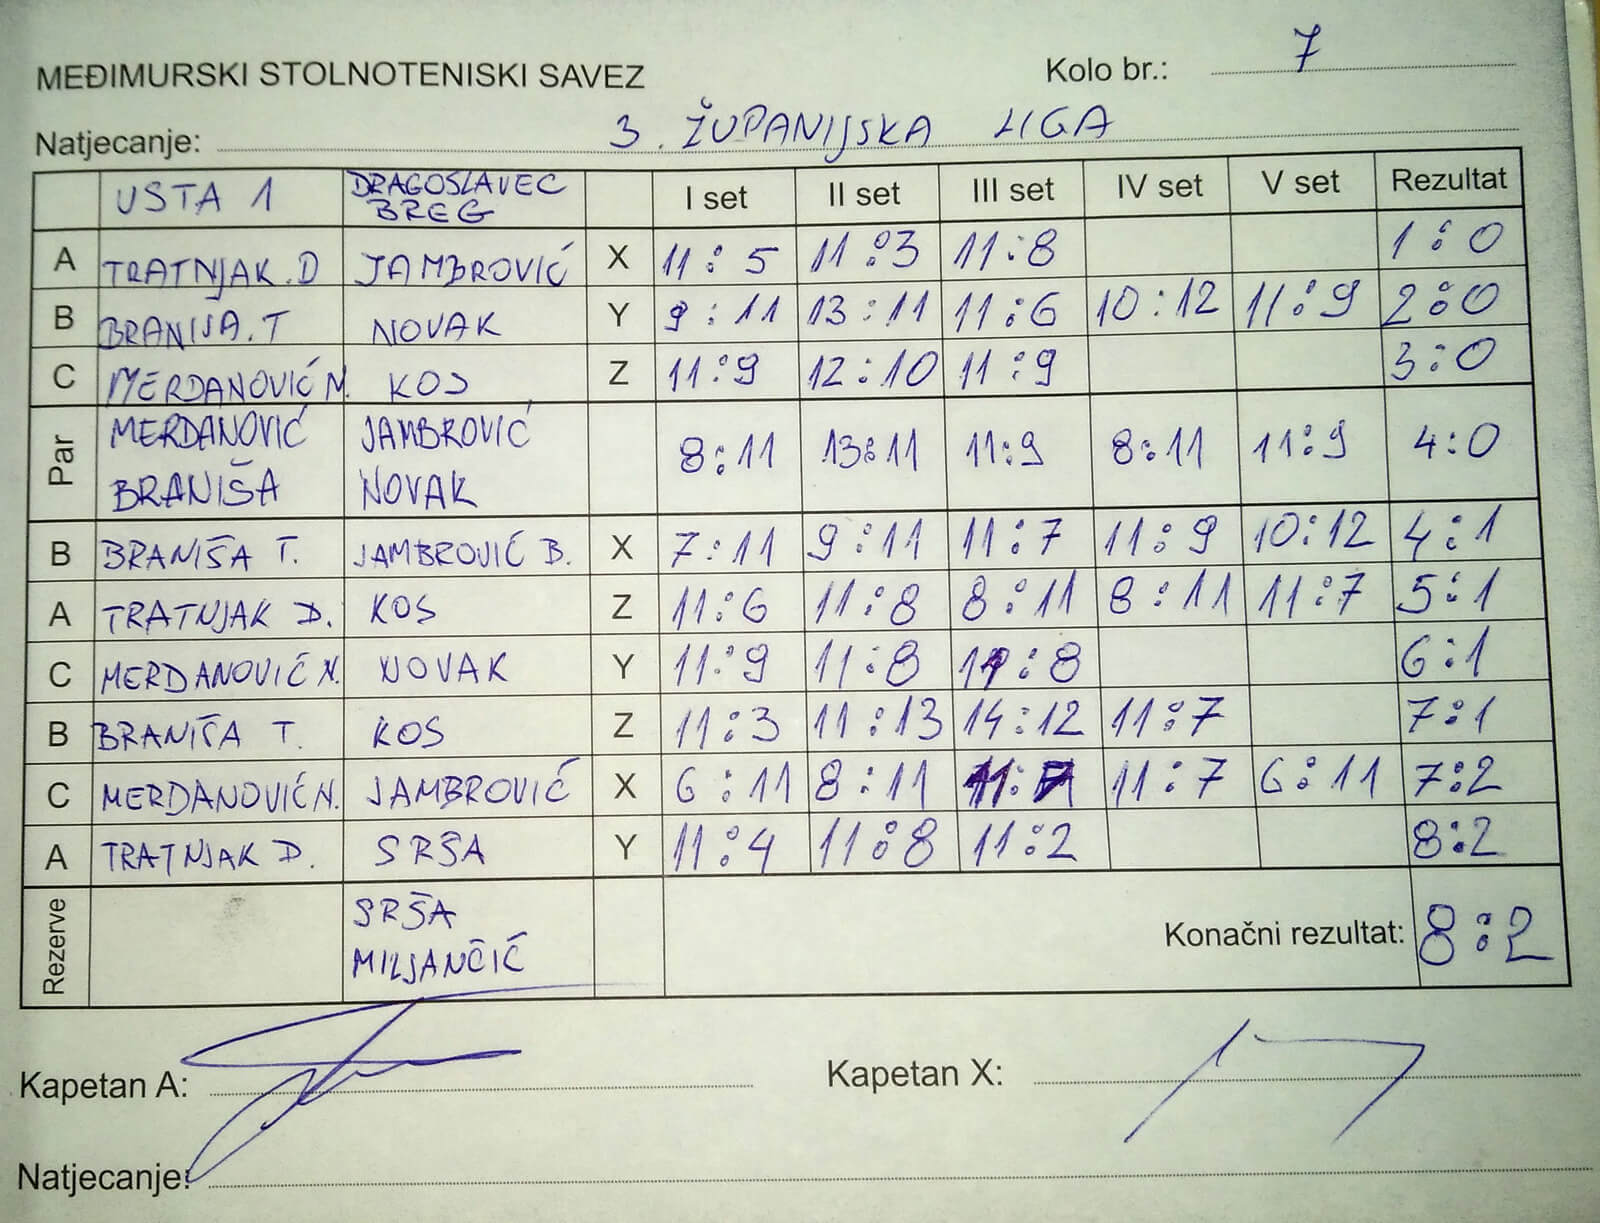 MEĐIMURSKI STOLNOTENISKI SAVEZ Kolo br.: 7
Natjecanje: 3. ŽUPANIJSKA LIGA
USTA 1 DRAGOSLAVEC BREG I set II set III set IV set V set Rezultat
A TRATNJAK.D JAMBROVIĆ X 11:5 11:3 11:8 1:0
B BRANIJA.T NOVAK Y 9:11 13:11 11:6 10:12 11:9 2:0
C MERDANOVIĆ N. KOS Z 11:9 12:10 11:9 3:0
Par MERDANOVIĆ BRANIŠA JAMBROVIĆ NOVAK 8:11 13:11 11:9 8:11 11:9 4:0
B BRANIŠA T. JAMBROVIĆ B. X 7:11 9:11 11:7 11:9 10:12 4:1
A TRATNJAK D. KOS Z 11:6 11:8 8:11 8:11 11:7 5:1
C MERDANOVIĆ N. NOVAK Y 11:9 11:8 11:8 6:1
B BRANIŠA T. KOS Z 11:3 11:13 14:12 11:7 7:1
C MERDANOVIĆ N. JAMBROVIĆ X 6:11 8:11 11:7 11:7 6:11 7:2
A TRATNJAK D. SRŠA Y 11:4 11:8 11:2 8:2
Rezerve SRŠA MILJANČIĆ Konačni rezultat: 8:2
Kapetan A: Kapetan X:
Natjecanje: